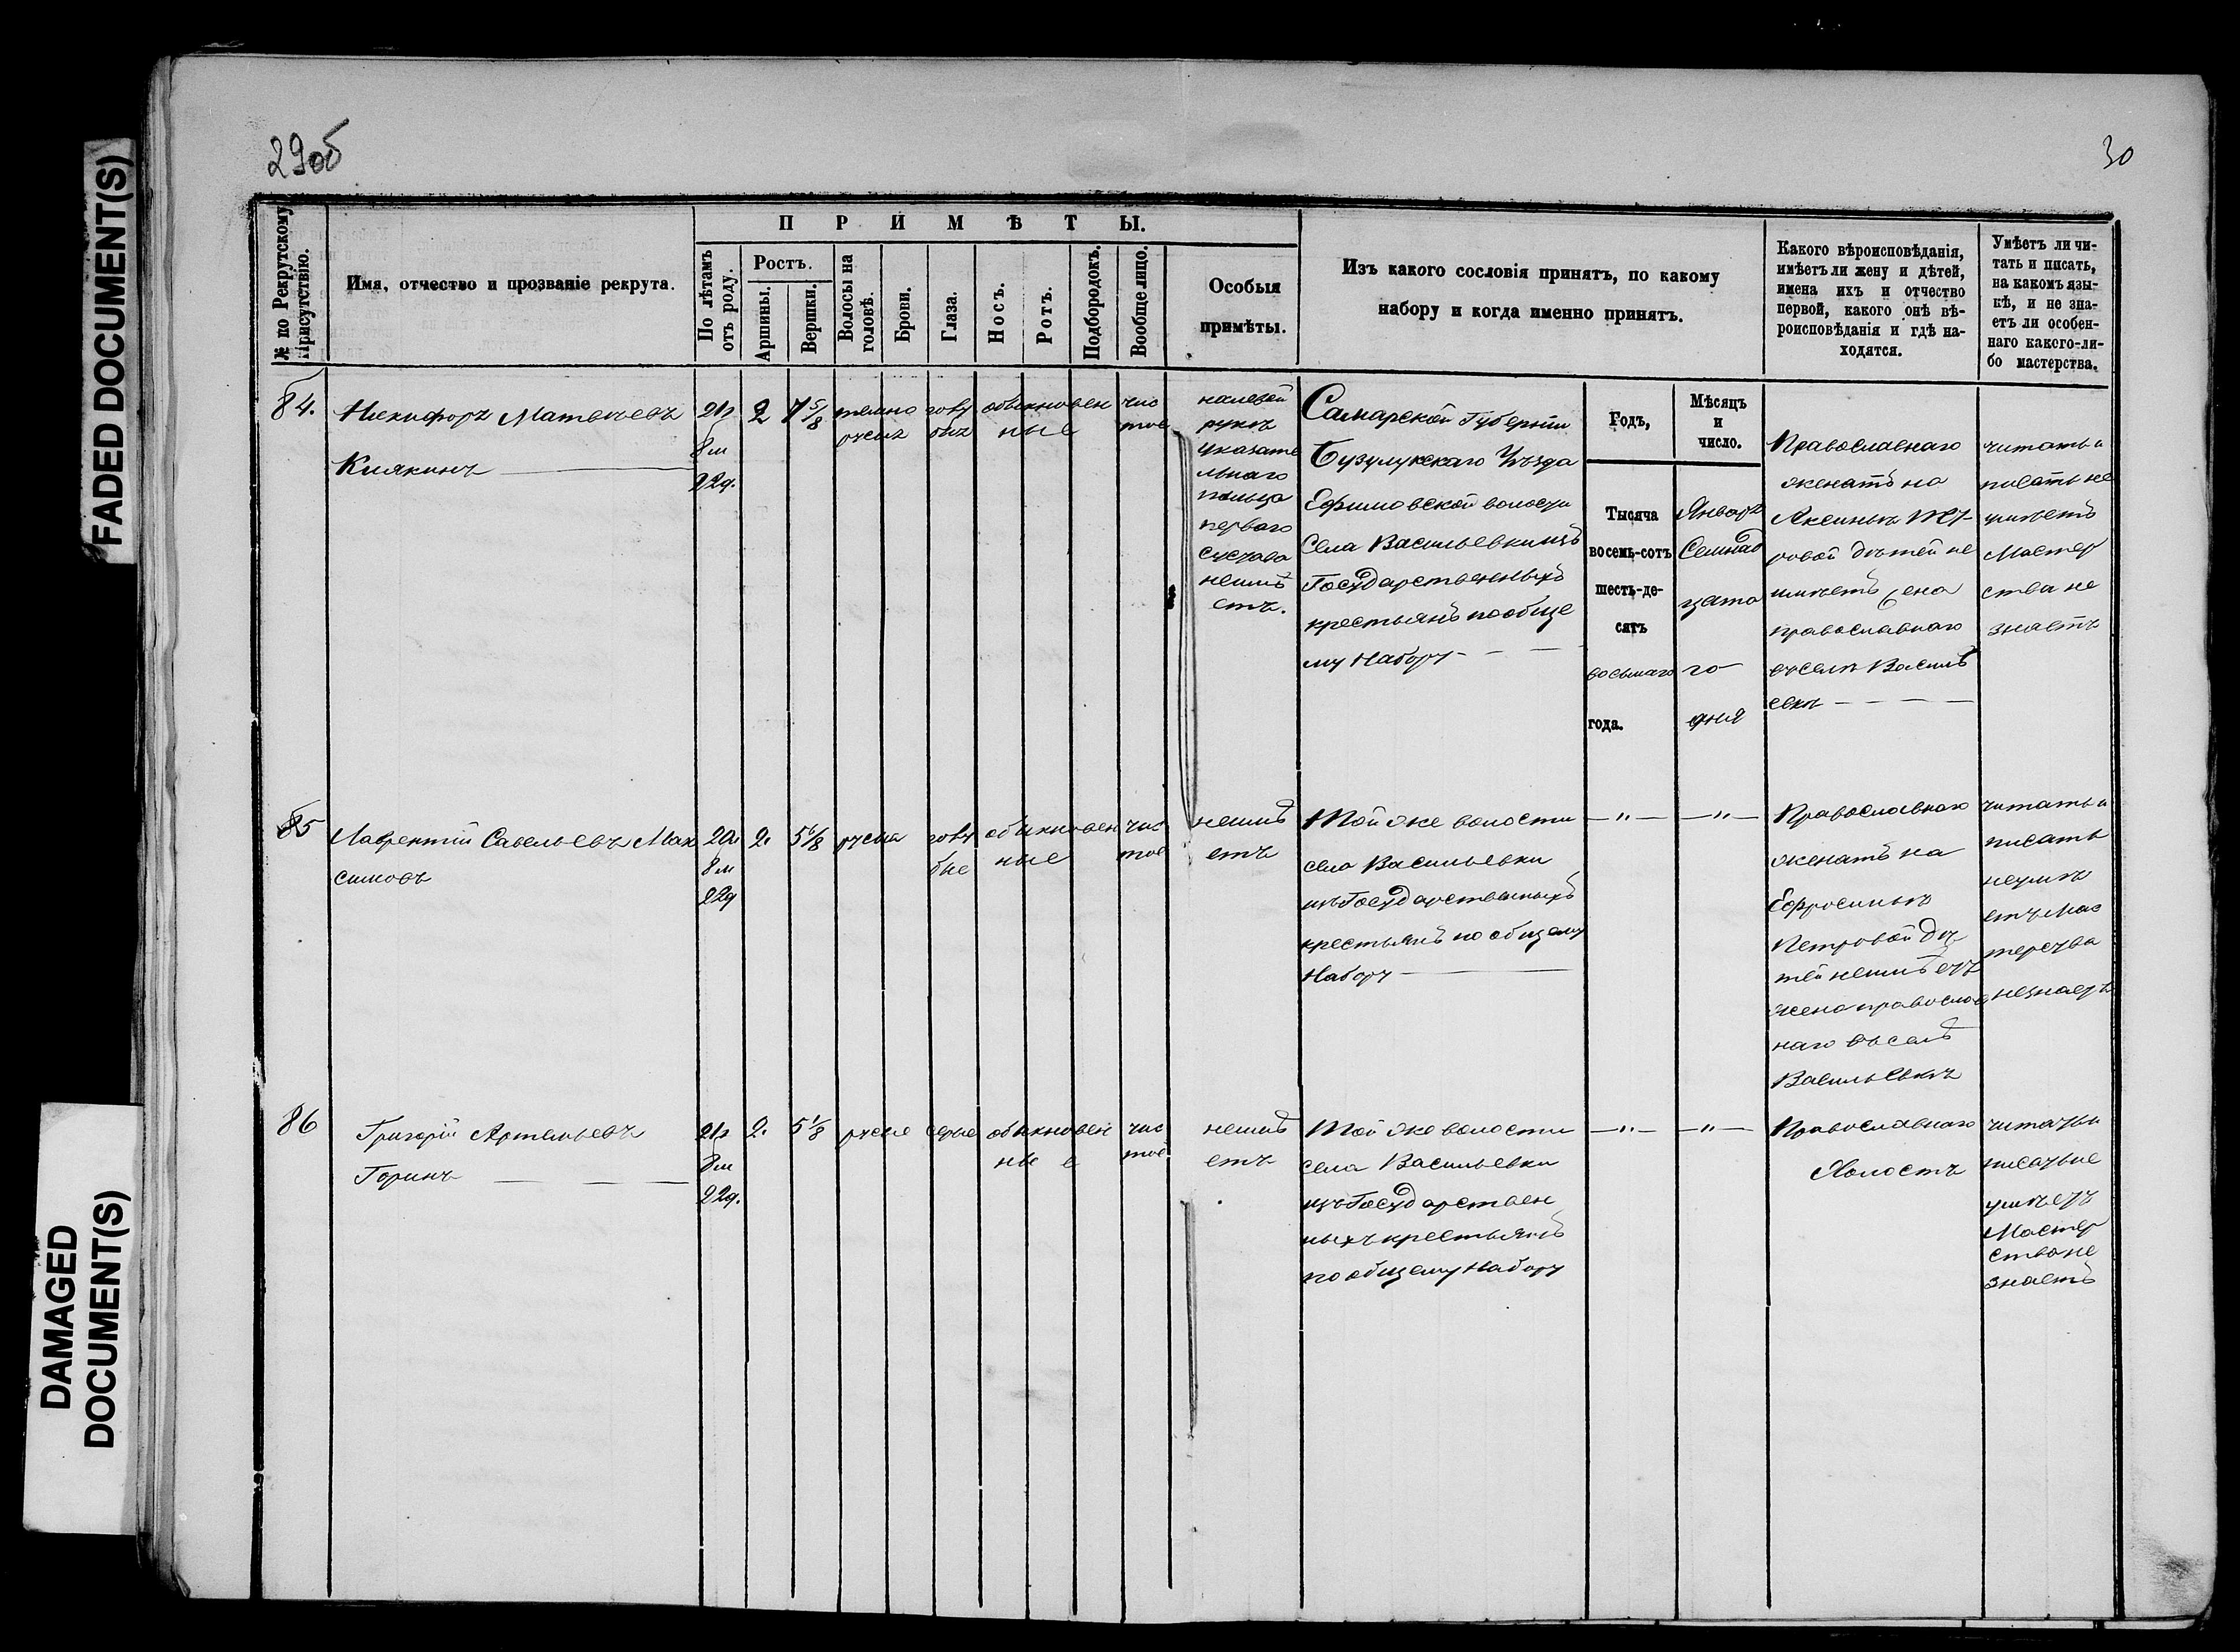 29об
30
FADED DOCUMENT(S)
DAMAGED
DOCUMENT(S)
№ по Рекрутскому
Присутствію.
Имя, отчество и прозваніе рекрута.
ПРИМѢТЫ.
По лѣтамъ
отъ роду.
Ростъ.
Аршины.
Вершки.
Волосы на
головѣ.
Брови.
Глаза.
Носъ.
Ротъ.
Подбородокъ.
Вообще лицо.
Особыя
примѣты.
Изъ какого сословія принятъ, по какому
набору и когда именно принятъ.
Какого вѣроисповѣданія,
имѣетъ ли жену и дѣтей,
имена ихъ и отчество
первой, какого онѣ вѣ-
роисповѣданія и гдѣ на-
ходятся.
Умѣетъ ли чи-
тать и писать,
на какомъ язы-
кѣ, и не зна-
етъ ли особен-
наго какого-ли-
бо мастерства.
84.
Никифоръ Матвѣевъ
Княкинъ
21г
8м
22д.
2
7 5/8
темно
русые
голу
бые
обыкновен
ные
чис
тое
на левой
рукѣ
указате
льнаго
пальца
перваго
сустава
неимѣ
етъ.
Самарской Губерніи
Бузулукскаго Уѣзда
Ефимовской волости
Села Васильевки изъ
Государственныхъ
крестьянъ по обще
му набору
Годъ,
Мѣсяцъ
и
число.
Тысяча
восемь-сотъ
шесть-де-
сятъ
восьмаго
года.
Января
Семнад
цата
го
дня
Православнаго
женатъ на
Аксиньѣ
ровой дѣтей не
имѣетъ, она
православнаго
въ селѣ Василь
евкѣ
читать и
писать не
умѣетъ
Мастер
ства не
знаетъ
85
Лаврентій Савельевъ Мак
симовъ
20г
8м
22д
2.
5 6/8
русые
голу
бые
обыкновен
ные
чис
тое
неимѣ
етъ
Той же волости
села Васильевки
изъ Государственныхъ
крестьянъ по общему
Набору
— „ —
— „ —
Православнаго
женатъ на
Ефросиньѣ
Петровой дѣ
тей неимѣетъ
жена православ
наго въ селѣ
Васильевкѣ
читать и
писать
неумѣ
етъ Мас
терства
незнаетъ
86
Григорій Артемьевъ
Горинъ
21г
8м
22д.
2.
5 1/8
русые
серые
обыкновен
ные
чис
тое
неимѣ
етъ
Той же волости
села Васильевки
изъ Государствен
ныхъ крестьянъ
по общему Набору
— „ —
— „ —
Православнаго
Холостъ
читать и
писать не
умѣетъ
Мастер
ства не
знаетъ